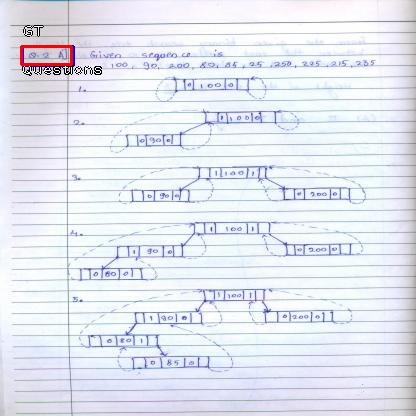 GT
Q.2 A] Given sequence is
Questions
100, 90, 200, 80, 85, 25, 250, 225, 215, 235
1.
0 100 0
2.
1 100 0
0 90 0
3.
1 100 1
0 90 0
0 200 0
4.
1 100 1
1 90 0
0 200 0
0 80 0
5.
1 100 1
1 90 0
0 200 0
0 80 1
0 85 0